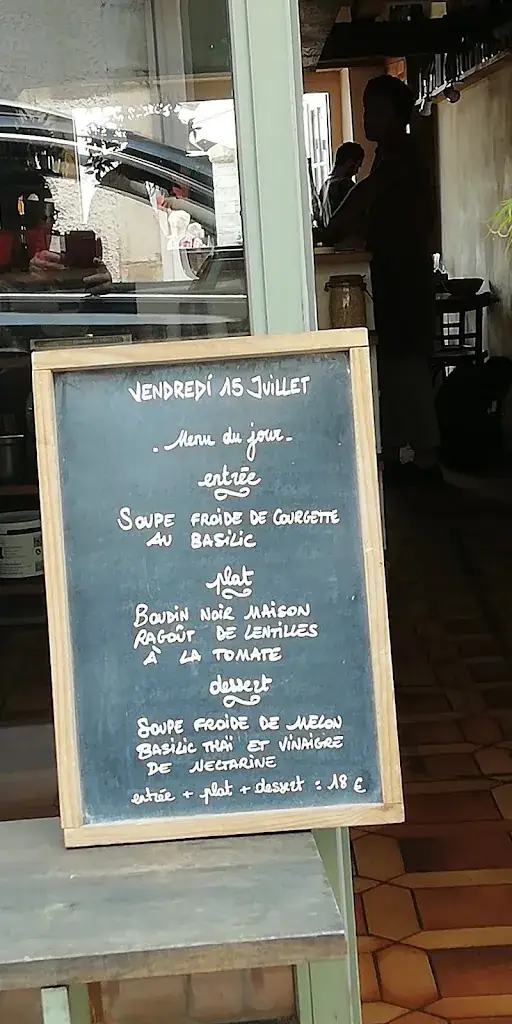 VENDREDI 15 JUILLET
. Menu du jour.
entrée
SOUPE FROIDE DE COURGETTE
AU BASILIC
plat
BOUDIN NOIR MAISON
RAGOÛT DE LENTILLES
À LA TOMATE
dessert
SOUPE FROIDE DE MELON
BASILIC THAÏ ET VINAIGRE
DE NECTARINE
entrée + plat + dessert : 18 €